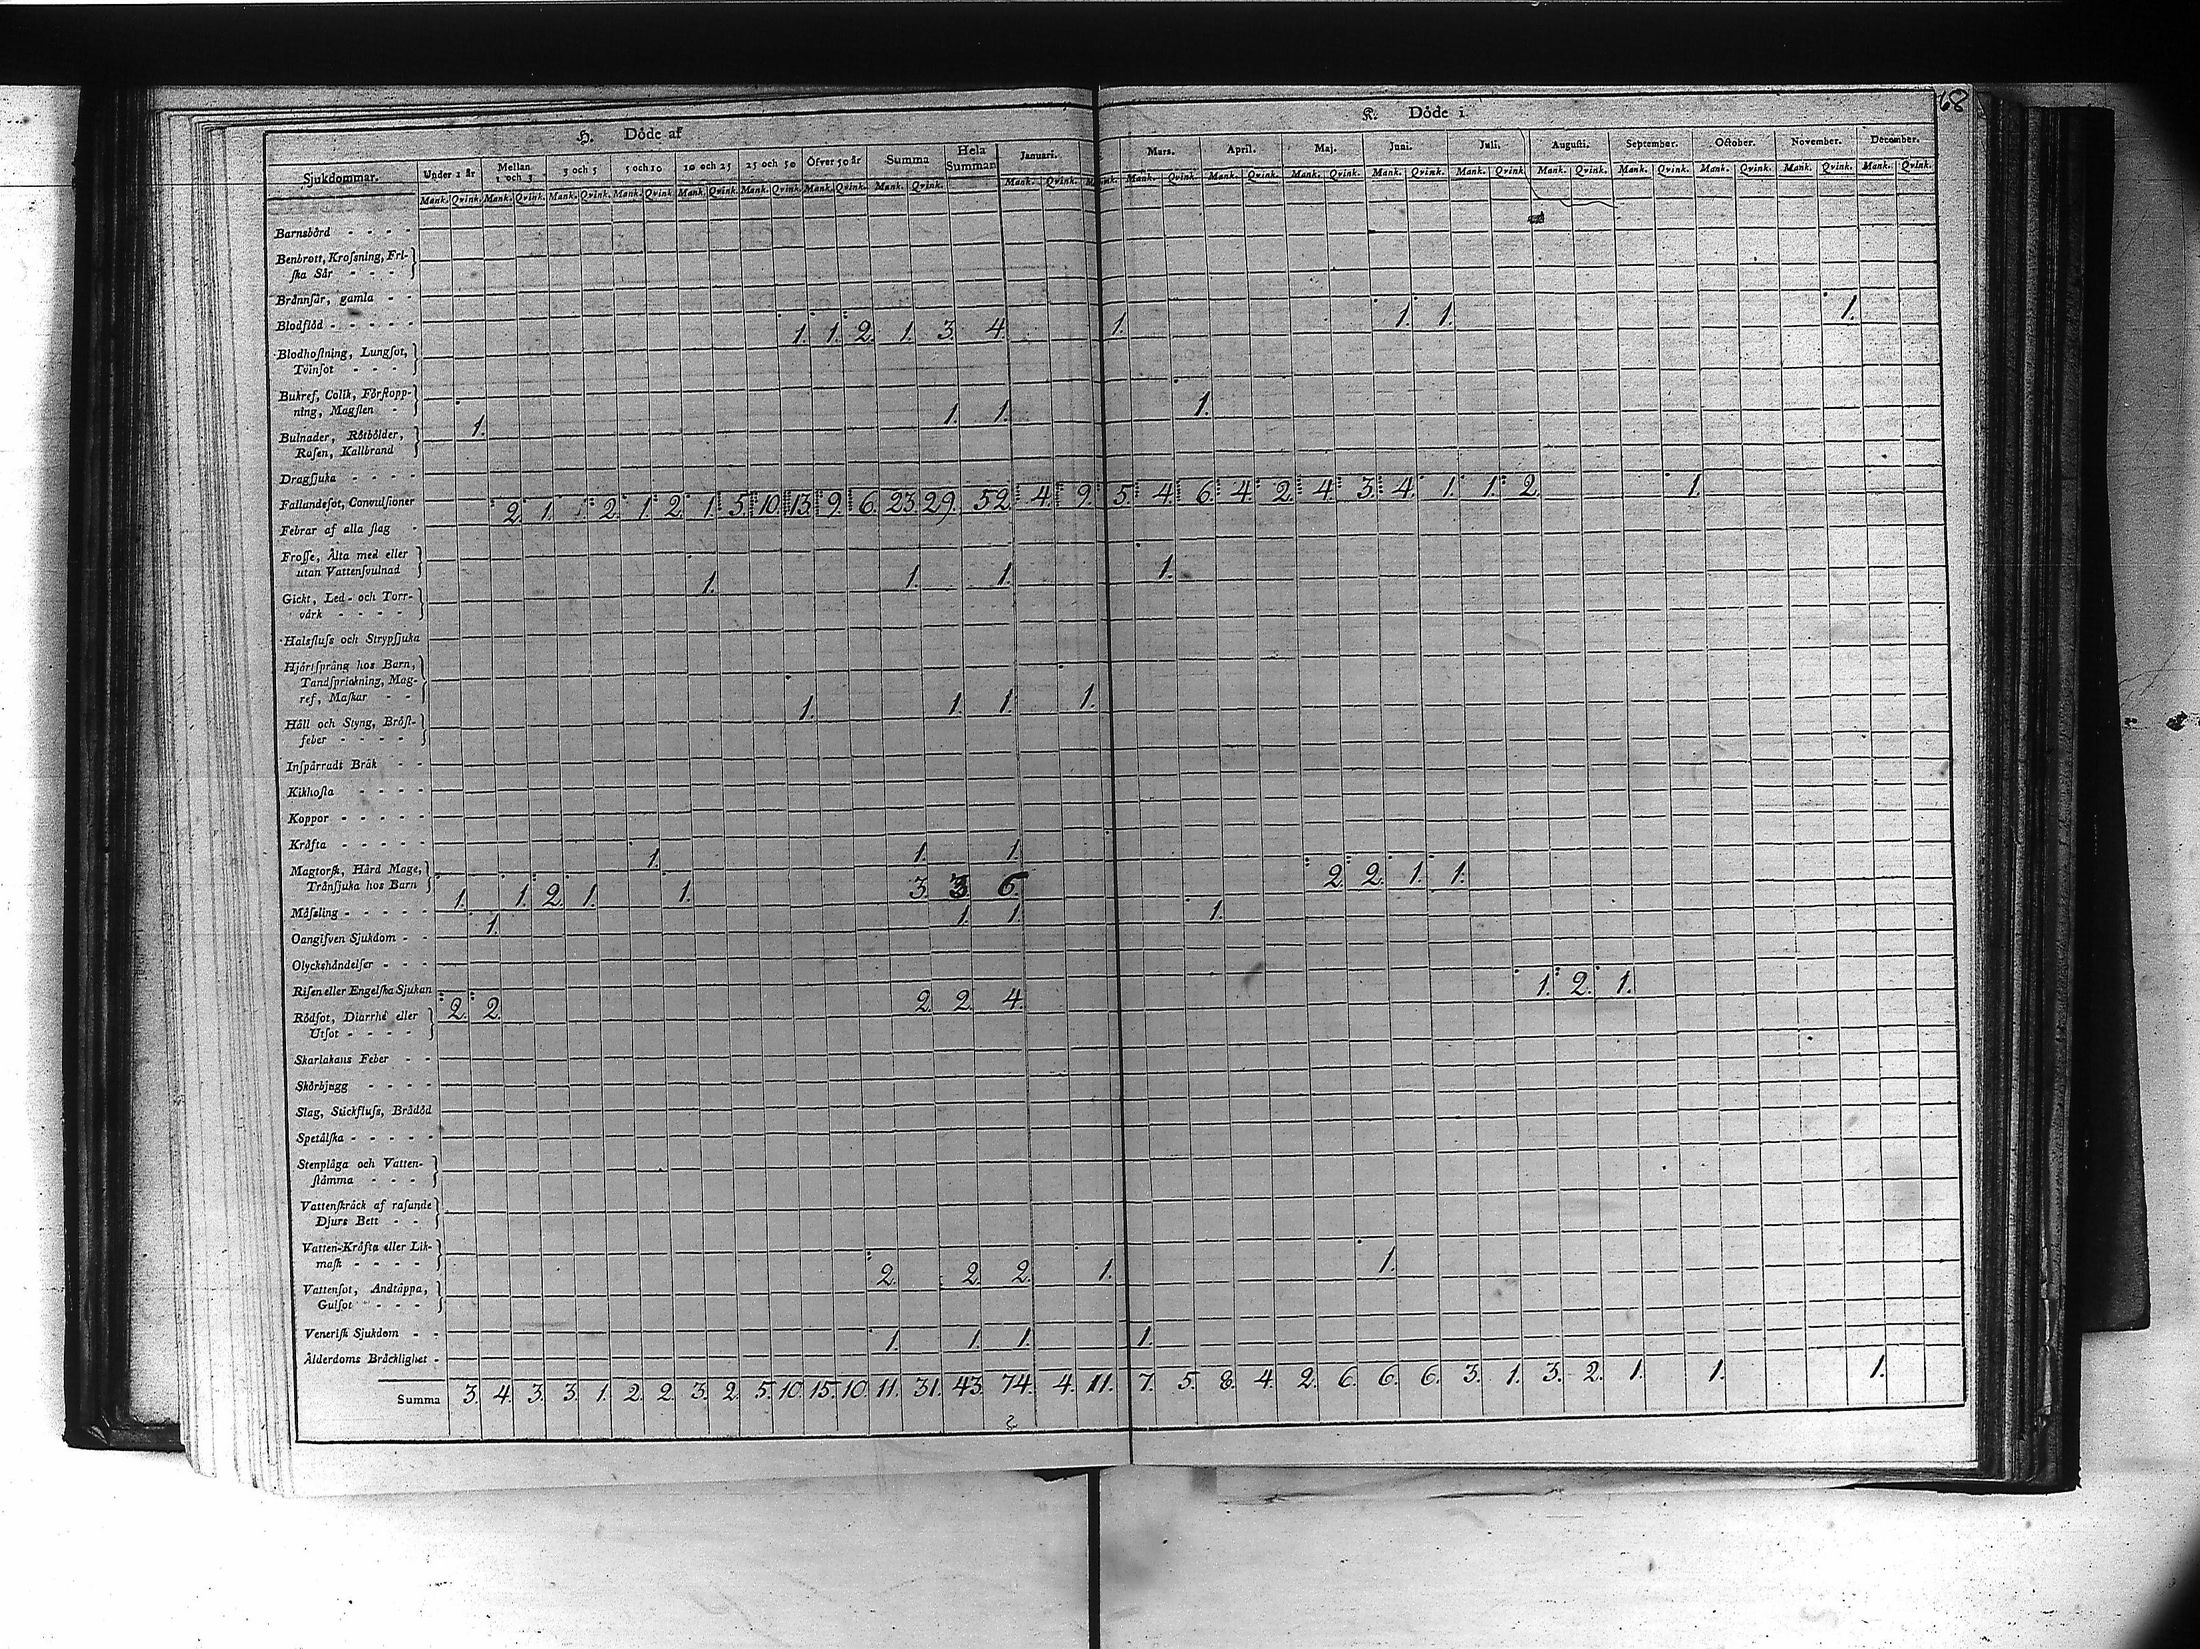 68
H. Döde af
K. Döde i.
Sjukdommar. Under 1 år Mellan 1 och 3 3 och 5 5 och 10 10 och 25 25 och 50 Öfver 50 år Summa Hela Summan Januari. Mars. April. Maj. Juni. Juli. Augusti. September. October. November. December.
Mank. Qvink. Mank. Qvink. Mank. Qvink. Mank. Qvink. Mank. Qvink. Mank. Qvink. Mank. Qvink. Mank. Qvink. Mank. Qvink. Mank. Qvink. Mank. Qvink. Mank. Qvink. Mank. Qvink. Mank. Qvink. Mank. Qvink. Mank. Qvink. Mank. Qvink. Mank. Qvink. Mank. Qvink.
Barnsbörd - - - -
Benbrott, Krossning, Fri-
ska Sår - - -
Brännsår, gamla - -
Blodflöd - - - - - 1. 1. 2. 1. 3. 4. 1. 1. 1. 1.
Blodhostning, Lungsot,
Tvinsot - - -
Bukref, Colik, Förstopp-
ning, Magsten - 1. 1. 1. 1.
Bulnader, Rötbölder,
Rosen, Kallbrand
Dragsjuka - - - -
Fallandesot, Convulsioner 2. 1. 1 2. 1. 2. 1. 5. 10. 13. 9. 6. 23. 29. 52. 4. 9. 5. 4. 6. 4. 2. 4. 3. 4. 1. 1. 2. 1.
Febrar af alla slag -
Frosse, Ålta med eller
utan Vattensvulnad 1. 1. 1. 1.
Gickt, Led- och Torr-
värk - - - -
Halsfluss och Strypsjuka
Hjärtsprång hos Barn,
Tandsprickning, Mag-
ref, Maskar - - 1. 1. 1. 1.
Håll och Styng, Bröst-
feber - - - -
Inspärradt Bråk - -
Kikhosta - - - -
Koppor - - - - -
Kräfta - - - - - 1. 1. 1.
Magtorsk, Hård Mage,
Trånsjuka hos Barn 1. 1. 2. 1. 1. 3. 3 6. 2. 2. 1. 1.
Mässling - - - - - 1. 1. 1. 1.
Oangifven Sjukdom - -
Olyckshändelser - - -
Risen eller Engelska Sjukan 2. 2. 2. 2. 4. 1. 2. 1.
Rödsot, Diarrhé eller
Utsot - - - -
Skarlakans Feber - -
Skörbjugg - - - -
Slag, Stickfluss, Brådöd
Spetälska - - - - -
Stenplåga och Vatten-
stämma - - -
Vattenskräck af rasande
Djurs Bett - -
Vatten-Kräfta eller Lik-
mask - - - - 2. 2. 2. 1. 1.
Vattensot, Andtäppa,
Gulsot - - -
Venerisk Sjukdom - - 1. 1. 1. 1.
Ålderdoms Bräcklighet -
Summa 3. 4. 3. 3. 1. 2. 2. 3. 2. 5. 10. 15. 10. 11. 31. 43. 74. 4. 11. 7. 5. 8. 4. 2. 6. 6. 6. 3. 1. 3. 2. 1. 1. 1.